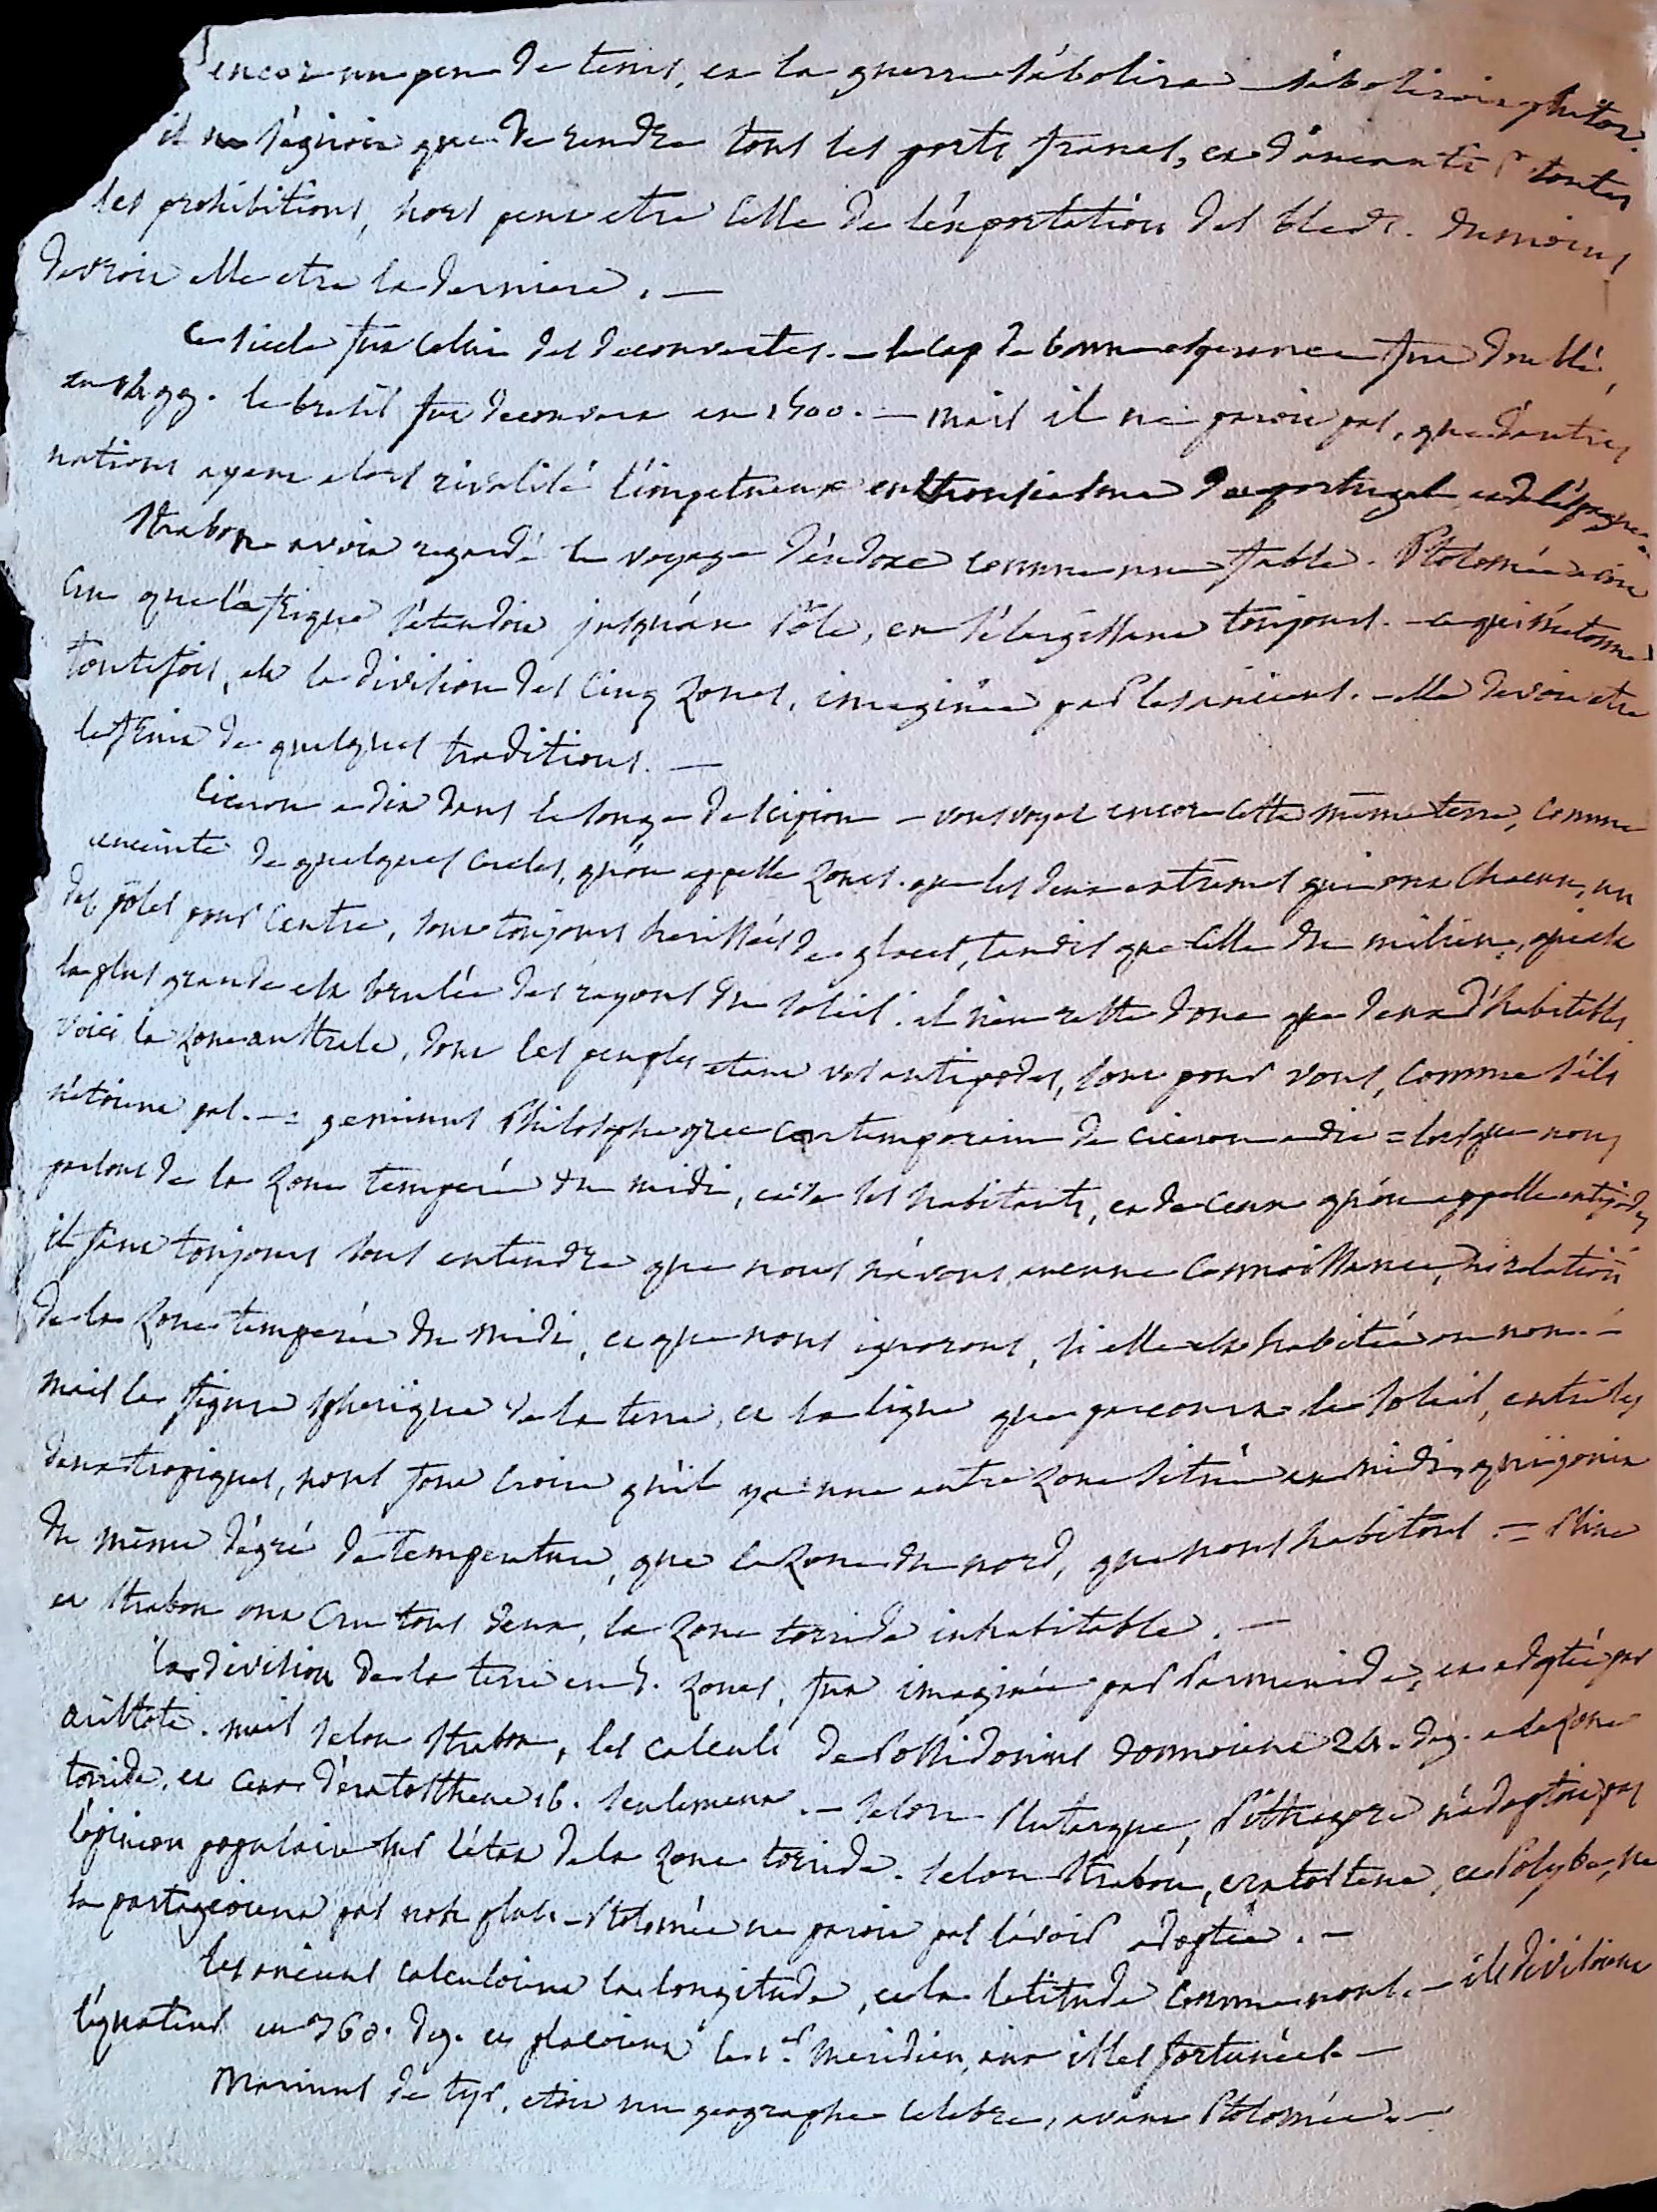 encor un peu de tems, et la guerre s'abolira s'aboliroit plutôt.
il ne s'agiroit que de rendre tous les ports francs, et d'aneantir toutes
les prohibitions, hors peut etre celle de l'exportation des bleds. du moins
devroit elle etre la derniere. —
Ce siecle fut celui des decouvertes. — le cap de bonne esperance fut doublé,
en 1499. le bresil fut decouvert en 1500. — mais il ne paroit pas, que d'autres
nations ayent alors rivalisé l'impetueux enthousiasme du portugal et de l'espagne. —
Strabon avoit regardé le voyage d'eudoxe comme une fable. Ptolomée avoit
cru que l'afrique s'etendoit jusqu'au Pôle, en s'elargissant toujours. — ce qui m'etonne
toutefois, est la division des cinq zones, imaginée par les anciens. — elle devoit etre
le fruit de quelques traditions. —
Ciceron a dit dans le songe de scipion — vous voyez encore cette même terre, comme
enceinte de quelques cercles, qu'on appelle zones. que les deux extremes qui ont chacun, un
des pôles pour centre, sont toujours herissées de glaces, tandis que celle du milieu, qui est
la plus grande est brulée des rayons du soleil. il n'en reste donc que deux d'habitables.
voici la zone australe, dont les peuples etant vos antipodes, sont pour vous, comme s'ils
n'etoient pas. — = geminus Philosophe grec contemporain de ciceron a dit = lorsque nous
parlons de la zone temperée du midi, et de ses habitants, et de ceux qu'on appelle antipodes
il faut toujours sous entendre que nous n'avons aucune connoissance, ni relation
de la zone temperée du midi, et que nous ignorons, si elle est habitée ou non. —
mais la figure spherique de la terre, et la ligne que parcourt le soleil, entre les
deux tropiques, nous font croire qu'il y a une autre zone située au midi, qui jouit
du même dégré de temperature, que la zone du nord, que nous habitons. — = Pline
et Strabon ont cru tous deux, la zone torride inhabitable. —
la division de la terre en 5. zones, fut imaginée par Parmenide, et adoptée par
aristote. mais selon Strabon, les calculs de Possidonius donnoient 24. deg. a la zone
torride, et ceux d'eratosthene 16. seulement. — selon Plutarque, Pithagore n'adoptoit pas
l'opinion populaire sur l'état de la zone torride. selon Strabon, eratostene, et Polybe, ne
la partageoient pas non plus — Ptolomée ne paroit pas l'avoir adoptée. —
les anciens calculoient la longitude, et la latitude comme nous. — ils divisoient
l'equateur en 360. deg. et placoient le 1.er meridien, aux isles fortunées. —
Marinus de tyr, etoit un geographe celebre, avant Ptolomée. —